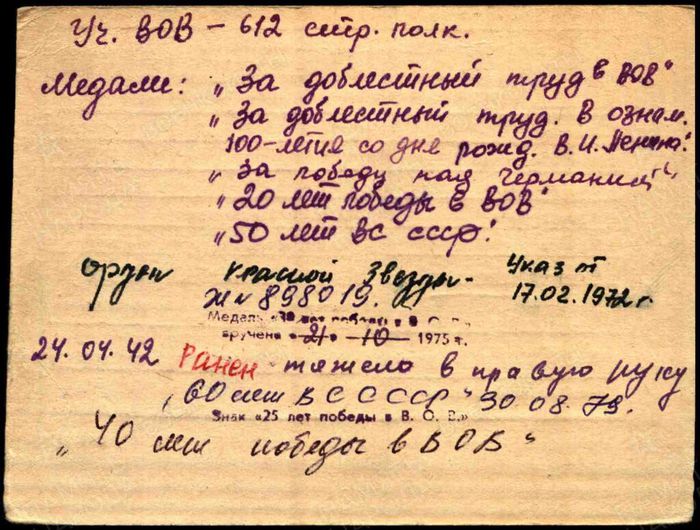 Уч. ВОВ – 612 стр. полк.
Медали: „За доблестный труд в ВОВ"
„За доблестный труд. В ознам.
100-летия со дня рожд. В.И. Ленина."
„За победу над Германией"
„20 лет победы в ВОВ"
„50 лет ВС СССР."
орден Красной Звезды - Указ от
№ 898019. 17.02.1972 г.
Медаль «30 лет победы в В. О. В.»
вручена «21» 10 1975 г.
24.04.42 Ранен тяжело в правую руку
„60 лет ВС СССР" 30.08.79.
Знак «25 лет победы в В. О. В.»
„40 лет победы в ВОВ"